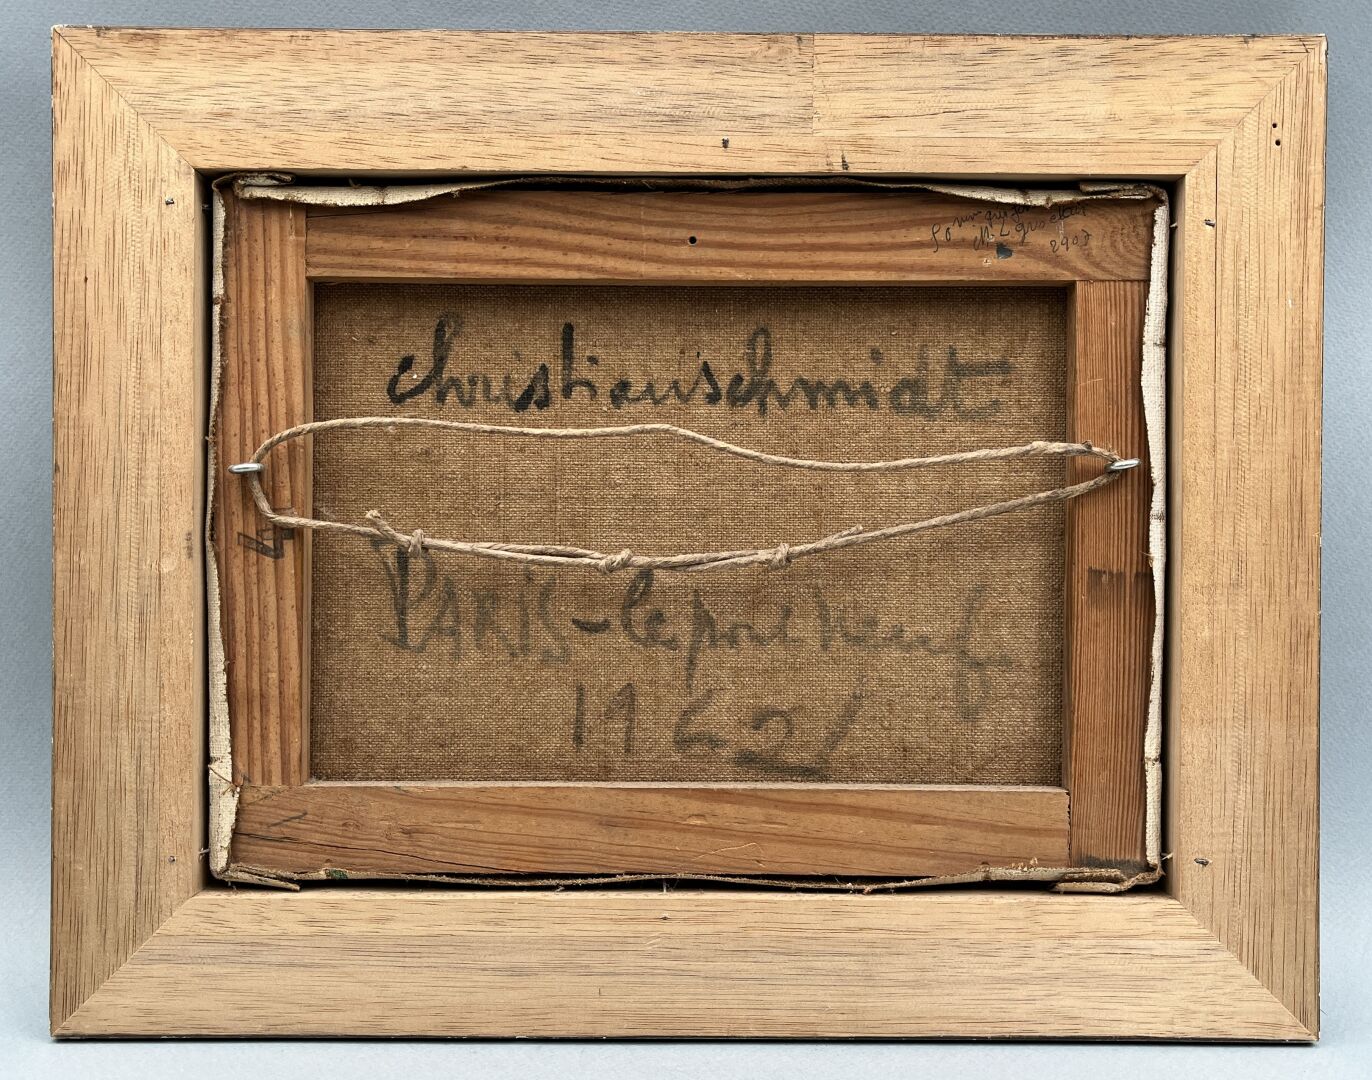 christian schmidt
PARIS - le pont Neuf
1962
4
2907